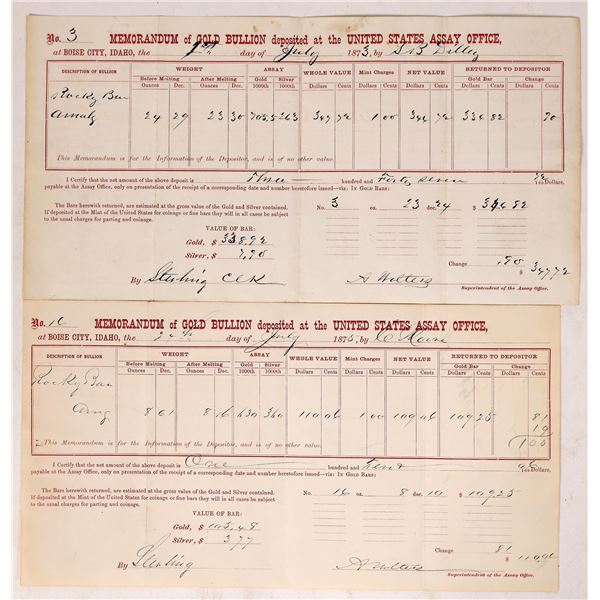 No. 3 MEMORANDUM of GOLD BULLION deposited at the UNITED STATES ASSAY OFFICE,
at BOISE CITY, IDAHO, the 1st day of July 1873, by S B Dilley
DESCRIPTION OF BULLION WEIGHT ASSAY WHOLE VALUE Mint Charges NET VALUE RETURNED TO DEPOSITOR
Before Melting After Melting Gold Silver Gold Bar Change
Ounces Dec. Ounces Dec. 1000th 1000th Dollars Cents Dollars Cents Dollars Cents Dollars Cents Dollars Cents
Rocky Bar
24 29 23 30 263 347 72 1 00 346 72 82 90
This Memorandum is for the Information of the Depositor, and is of no other value.
I Certify that the net amount of the above deposit is Three hundred and Forty seven 72/100 Dollars.
payable at the Assay Office, only on presentation of the receipt of a corresponding date and number heretofore issued—viz: IN GOLD BARS:
The Bars herewith returned, are estimated at the gross value of the Gold and Silver contained. No. 3 oz. 23 dec. 24 $ 82
If deposited at the Mint of the United States for coinage or fine bars they will in all cases be subject
to the usual charges for parting and coinage.
VALUE OF BAR:
Gold, $ 338,92
Silver, $ 7,90
Change .90
$ 347 72
By Sterling Clk A Wolters
Superintendent of the Assay Office.
No. 16 MEMORANDUM of GOLD BULLION deposited at the UNITED STATES ASSAY OFFICE,
at BOISE CITY, IDAHO, the 24th day of July 1873, by
DESCRIPTION OF BULLION WEIGHT ASSAY WHOLE VALUE Mint Charges NET VALUE RETURNED TO DEPOSITOR
Before Melting After Melting Gold Silver Gold Bar Change
Ounces Dec. Ounces Dec. 1000th 1000th Dollars Cents Dollars Cents Dollars Cents Dollars Cents Dollars Cents
Rocky Bar
8 01 8 16 630 360 110 06 1 00 109 06 109 25 81
19
1 00
This Memorandum is for the Information of the Depositor, and is of no other value.
I Certify that the net amount of the above deposit is One hundred and Ten 06/100 Dollars.
payable at the Assay Office, only on presentation of the receipt of a corresponding date and number heretofore issued—viz: IN GOLD BARS:
The Bars herewith returned, are estimated at the gross value of the Gold and Silver contained. No. 16 oz. 8 dec. 10 $ 109 25
If deposited at the Mint of the United States for coinage or fine bars they will in all cases be subject
to the usual charges for parting and coinage.
VALUE OF BAR:
Gold, $ 105,48
Silver, $ 3,77
Change 81
$ 110,06
By Sterling A Wolters
Superintendent of the Assay Office.